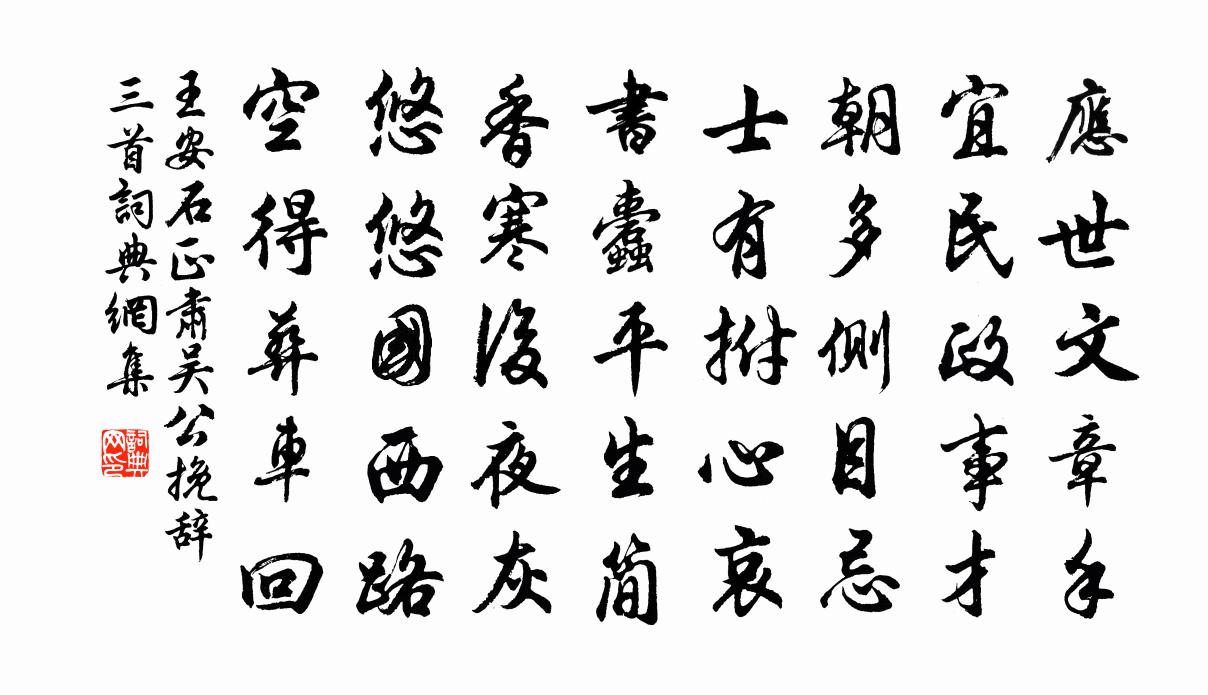 應世文章手
宜民政事才
朝多側目忌
士有拊心哀
書蠹平生簡
香寒後夜灰
悠悠國西路
空得葬車回
王安石正肅吳公挽辞
三首詞典網集
詞典网印